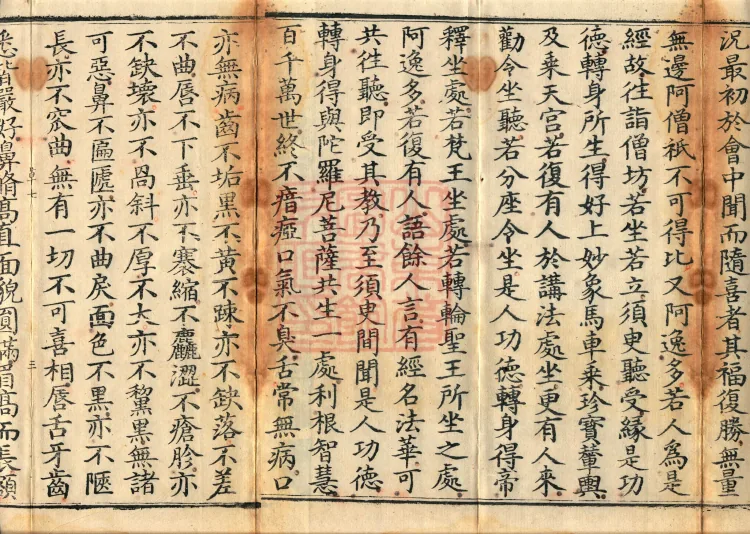 況最初於會中聞而隨喜者其福復勝無量
無邊阿僧祇不可得比又阿逸多若人為是
經故往詣僧坊若坐若立須臾聽受緣是功
德轉身所生得好上妙象馬車乗珍寶輦輿
及乗天宮若復有人於講法處坐更有人來
勸令坐聽若分座令坐是人功德轉身得帝
釋坐處若梵王坐處若轉輪聖王所坐之處
阿逸多若復有人語餘人言有經名法華可
共往聽即受其教乃至須臾間聞是人功德
轉身得與陀羅尼菩薩共生一處利根智慧
百千萬世終不瘖瘂口氣不臭舌常無病口
亦無病齒不垢黒不黃不踈亦不缺落不差
不曲脣不下垂亦不褰縮不麤澀不瘡胗亦
不缺壞亦不咼斜不厚不大亦不黧黒無諸
可惡鼻不匾㔸亦不曲戾面色不黒亦不陿
長亦不窊曲無有一切不可喜相脣舌牙齒
悉皆嚴好鼻脩髙直面貌圓滿眉髙而長額
三